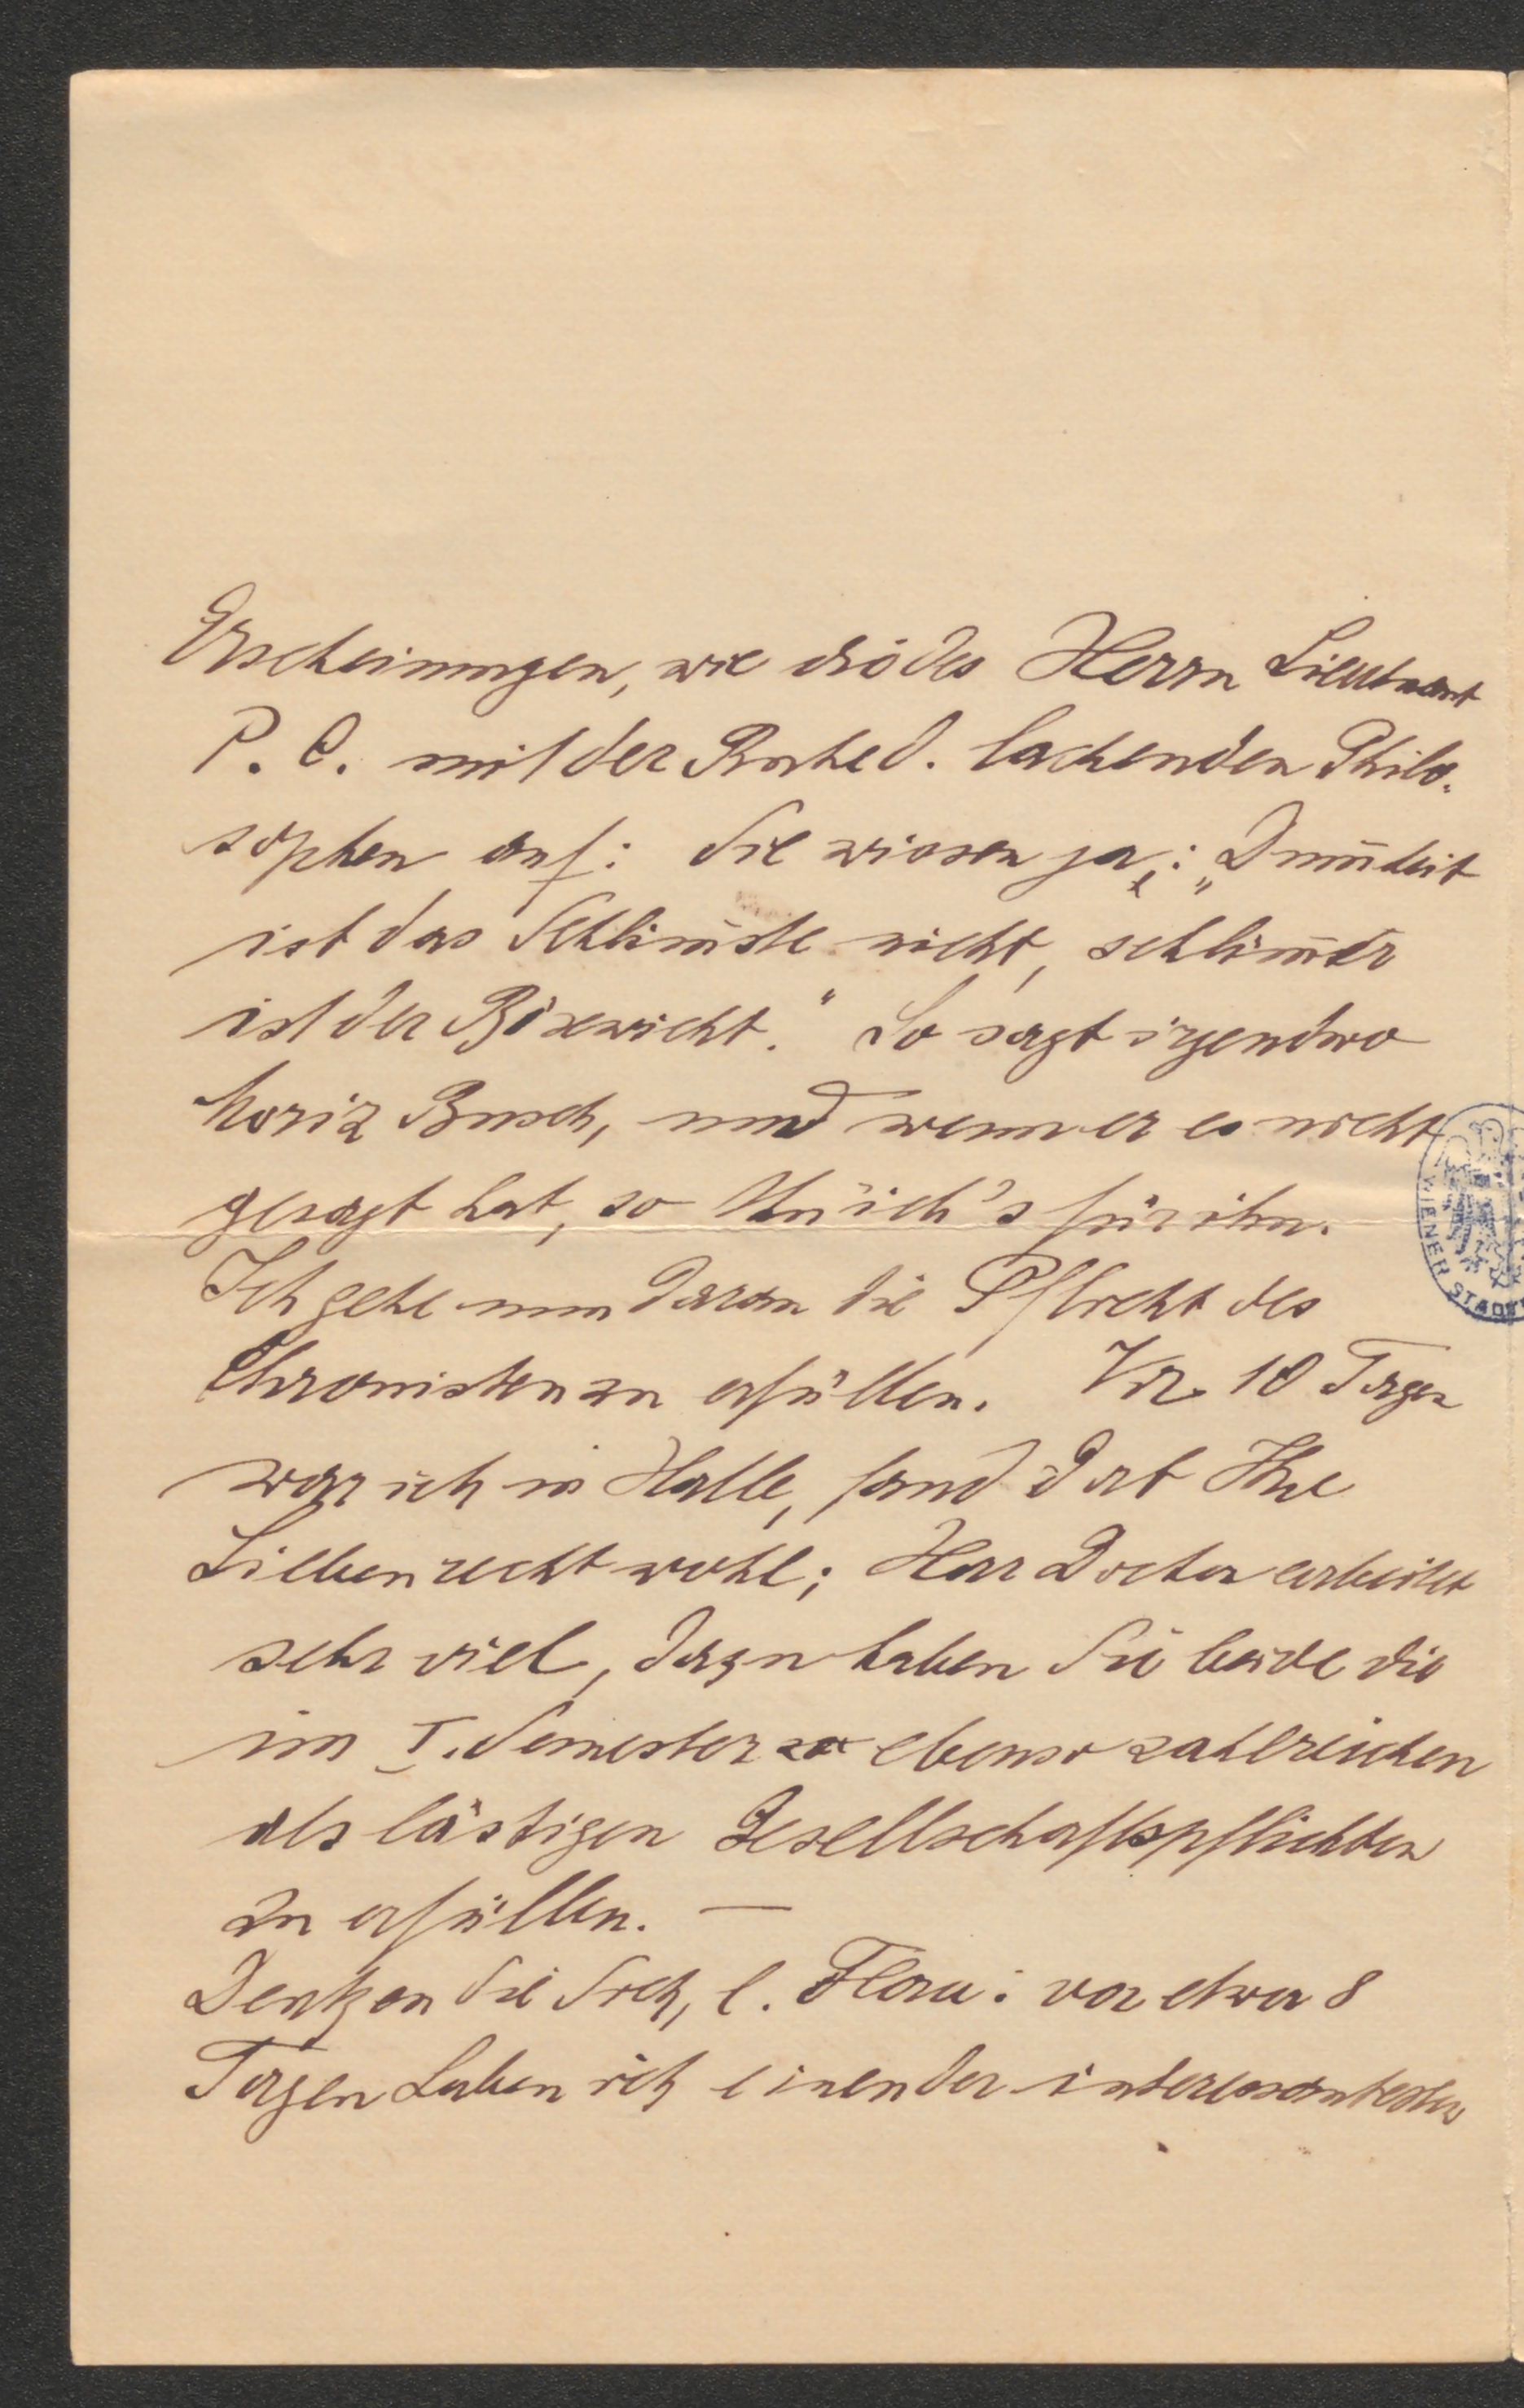 Erscheinungen, wie die des Herrn Lieutnant
P. C. mit der Ruhe d. lachenden Philo-
sophen auf: Sie wissen ja: „Dum̄heit
ist das Schlim̄ste nicht, schlim̄er
ist der Bösewicht.“ So sagt irgendwo
Moriz Busch, und wenn er es nicht
gesagt hat, so thu' ich's für ihn.
Ich gehe nun daran die Pflicht des
Chronisten zu erfüllen. Vor 10 Tagen
war ich in Halle, fand dort Ihre
Lieben recht wohl; Herr Doctor arbeitet
sehr viel, dazu haben Sie beide die
im I. Semester ebenso zahlreichen
als lästigen Gesellschaftspflichten
zu erfüllen. —
Denken Sie Sich, l. Flora: vor etwa 8
Tagen haben sich einender interessantesten
WIENER STADT